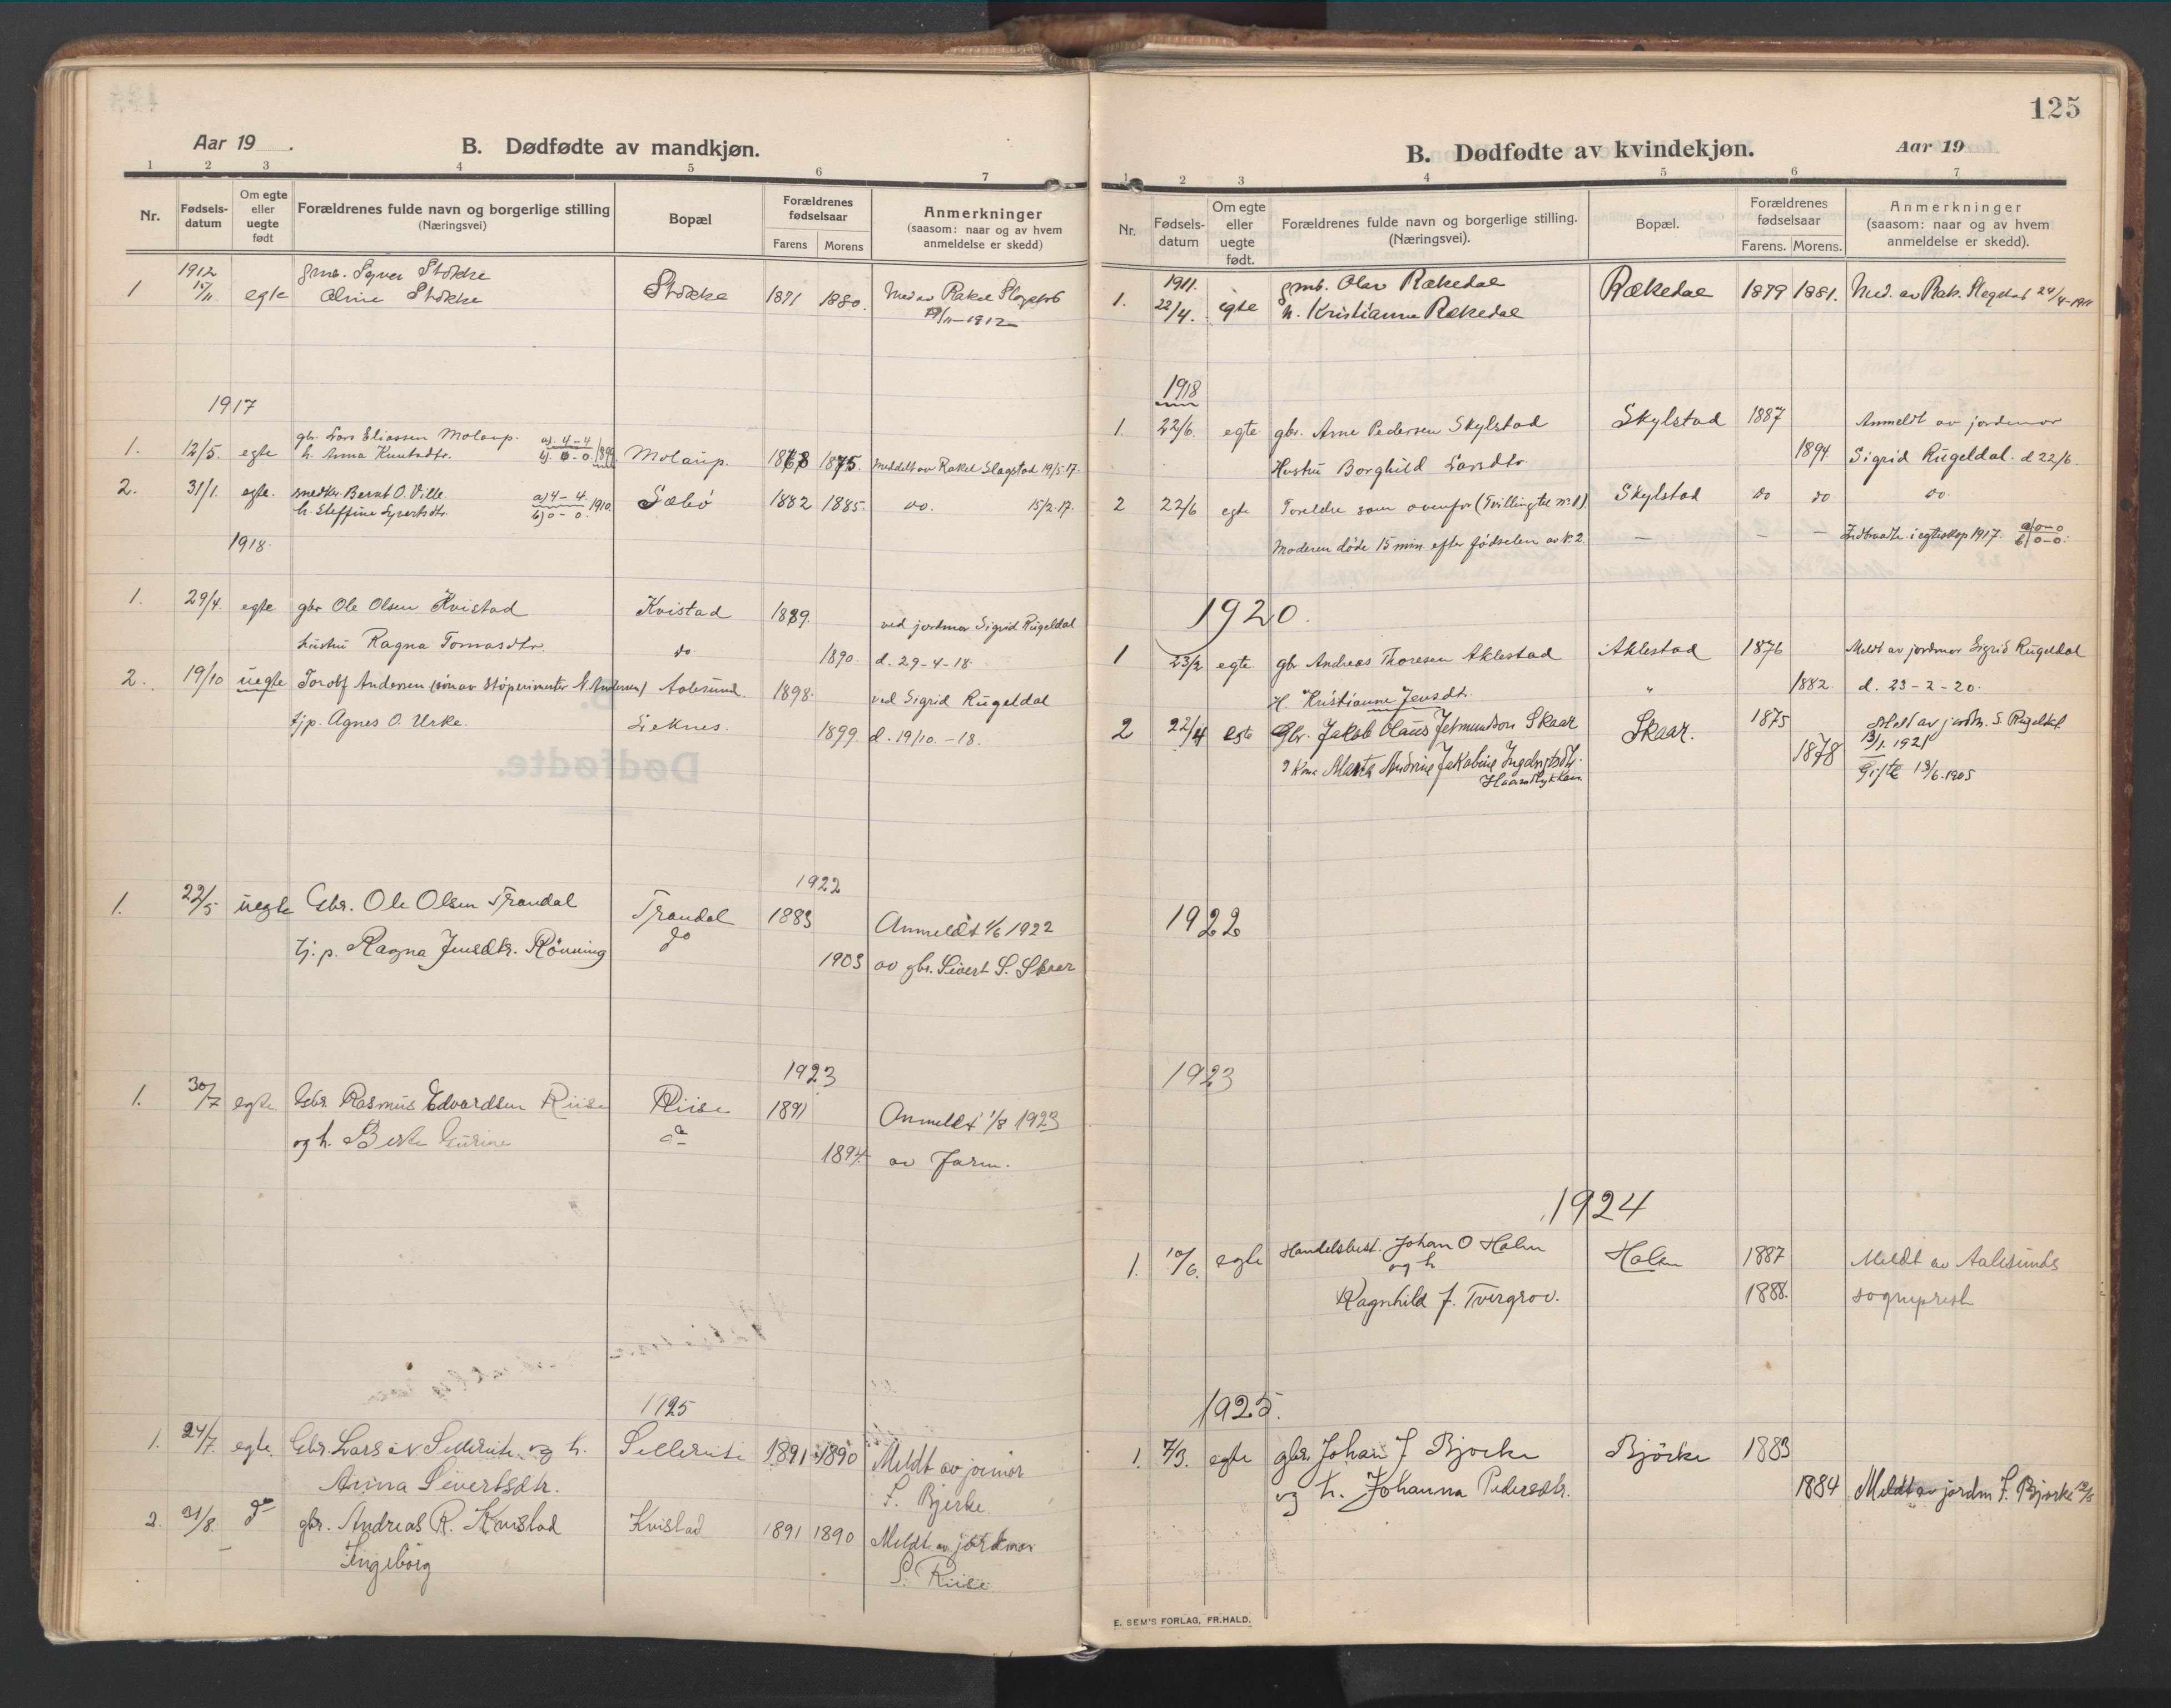 Aar 19 .
B. Dødfødte av mandkjøn.
1 2 3 4 5 6 7
Nr.
Fødsels-
datum
Om egte
eller
uegte
født
Forældrenes fulde navn og borgerlige stilling
(Næringsvei)
Bopæl
Forældrenes
fødselsaar
Farens Morens
Anmerkninger
(saasom: naar og av hvem
anmeldelse er skedd)
1912
1 15/11 egte gmb. Syver Stokke Stokke 1871 1880. Med av Rakel Slagstad
Oline Stokke
/11-1912
1917
1. 12/5. egte gbr. Lars Eliassen Molaup. a). 4-4
h. Anna Knutsdtr. b). 0-0 Molaup. 1875. Meddelt av Rakel Slagstad 19/5-17.
2. 31/1. egte. snedker Bernt O. Ville. a) 4-4 1910. Sæbø 1882 1885. do. 15/2-17.
h. Steffine Syvertsdtr. b) 0-0
1918.
1. 29/4. egte gbr Ole Olsen Kvistad Kvistad 1889. ved jordmor Sigrid Rugeldal
hustru Ragna Tomasdtr. do 1890. d. 29-4-18.
2. 19/10 uegte Torolf Andersen (søn av N. Andersen) Aalesund. 1898. ved Sigrid Rugeldal
tjp. Agnes O. Urke. Leknes. 1899. d. 19/10.-18.
1922
1. 22/5 uegte Gbr. Ole Olsen Trandal Trandal 1883 Anmeldt 1/6 1922
tj. p. Ragna Jensdtr. Rønning do 1903 av gbr. Sivert S. Skaar
1923
1. 30/7 egte Gbr. Rasmus Edvardsen Riise Riise 1891 Anmeldt 1/8 1923
og h. Berte Gurine do 1894 av Farm.
1925
1. 24/7. egte. Gbr. Lars Sellereite og h. Sellereite 1891 1890 Meldt av jormor
Anna Sivertsdtr. S. Bjerke.
2. 31/8. do gbr. Andreas R. Kvistad Kvistad 1891 1890 Meldt av jordmor
Ingeborg S. Riise
125
B. Dødfødte av kvindekjøn.
Aar 19
1 2 3 4 5 6 7
Nr.
Fødsels-
datum
Om egte
eller
uegte
født.
Forældrenes fulde navn og borgerlige stilling.
(Næringsvei).
Bopæl.
Forældrenes
fødselsaar
Farens. Morens.
Anmerkninger
(saasom: naar og av hvem
anmeldelse er skedd).
1911.
1. 22/4. egte gmb. Olav Rekedal Rekedal 1879 1881. Med. av Rak. Slagstad 24/4-1911
h. Kristianne Rekedal
1918
1. 22/6. egte gbr. Arne Pedersen Skylstad Skylstad 1887 Anmeldt av jordmor
Hustru Borghild Larsdtr. 1894. Sigrid Rugeldal. d 22/6.
2 22/6 egte Foreldre som ovenfor (Tvilling til nr. 1) Skylstad do do do.
Moderen døde 15 min. efter fødselen av nr. 2. — — — Indtraadte i egteskap 1917. a) 0-0 b) 0-0.
1920.
1 23/2 egte gbr Andreas Thoresen Aklestad Aklestad 1876 Meldt av jordmor Sigrid Rugeldal
H. Kristianne Jensdtr. " 1882. d. 23-2-20.
2 22/4 egte Gbr. Jakob Olaus Jetmundson Skaar Skaar. 1875 Meldt av jordm. S. Rugeldal
13/1. 1921
Marta Andrine Jakobine Ingebrigtsdtr. 1878 Gifte 13/6-1905
1922
1923
1924
1. 10/6. egte Handelsbest. Johan O Holen Holen 1887 Meldt av Aalesunds
og h
Ragnhild J. Tvergrov. 1888. sogneprest
1925.
1. 7/3. egte gbr. Johan J Bjørke Bjørke 1883
og h. Johanna Pedersdtr. 1884 Meldt av jordm S. Bjørke
E. SEM'S FORLAG, FR.HALD.
Dødfødte.